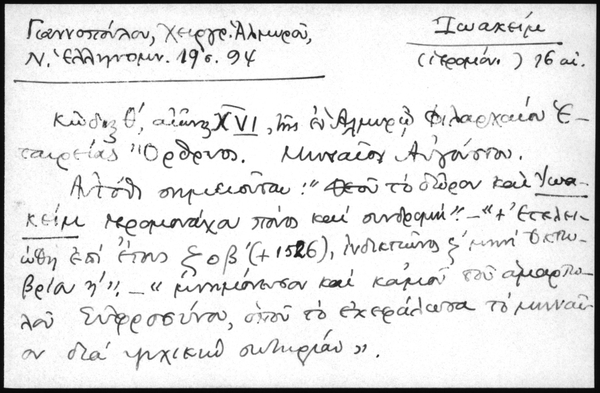 Γιαννοπούλου, Χειργρ. Ἁλμυροῦ,
Ν. Ἑλληνομν. 19, σ. 94
Ἰωακείμ
(ἱερομόν.) 16 αἰ.
Κῶδιξ θ', αἰῶνος XVI, τῆς ἐν Ἁλμυρῷ Φιλαρχαίου Ἑ-
ταιρείας "Ὄρθρυος. Μηναῖον Αὐγούστου.
Αὐτόθι σημειοῦται: "Θεοῦ τὸ δῶρον καὶ Ἰωα-
κείμ ἱερομονάχου πόνος καὶ συνδρομή". — "+ Ἐτελει-
ώθη ἐπί ἔτους ζοβ' (+ 1526), ἰνδικτιῶνος ξ' μηνί Ὀκτω-
βρίου η'". — "μνημόνευσον καὶ κἀμοῦ τοῦ ἁμαρτω-
λοῦ Εὐφροσύνου, ὁποῦ τὸ ἐκεφάλωσα τὸ μηναῖ-
ον διά ψυχικήν σωτηρίαν».